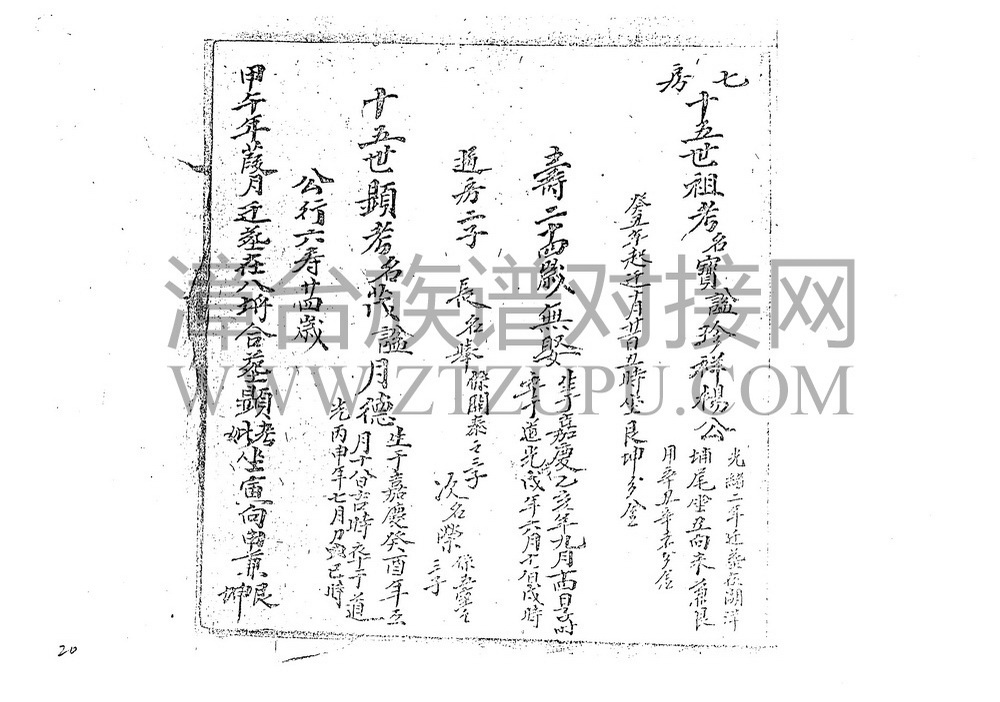 七房
十五世祖考名寶諡珍祥楊公
光緒二年迁葬在湖洋
埔尾坐丑向未兼艮
用辛丑辛未分金
癸丑年起迁月廿日丑時坐艮坤分金
壽二十四歲無娶
生于嘉慶乙亥年九月 日子時
卒于道光戊戌年六月 日戌時
過房二子
長名 係開泰之三子
次名榮 係 之三子
十五世顯考名 諡月德
生于嘉慶癸酉年五
月十八日吉時卒于道
光丙申年七月 日巳時
公行六壽廿四歲
甲午年葭月迁葬在八 合葬顯考妣坐寅向申兼艮坤
漳台族谱对接网
WWW.ZTZUPU.COM
20